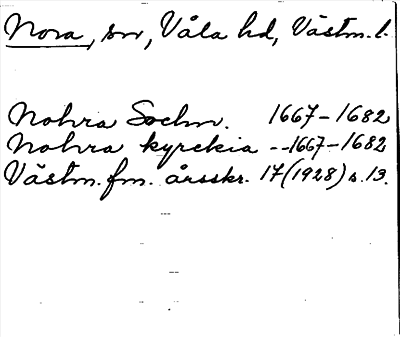 Nora, sn, Våla hd, Västm. l.
Nohra Sochn. 1667-1682
Nohra kyrckia --1667-1682
Västm. fm. årsskr. 17(1928) s. 13.